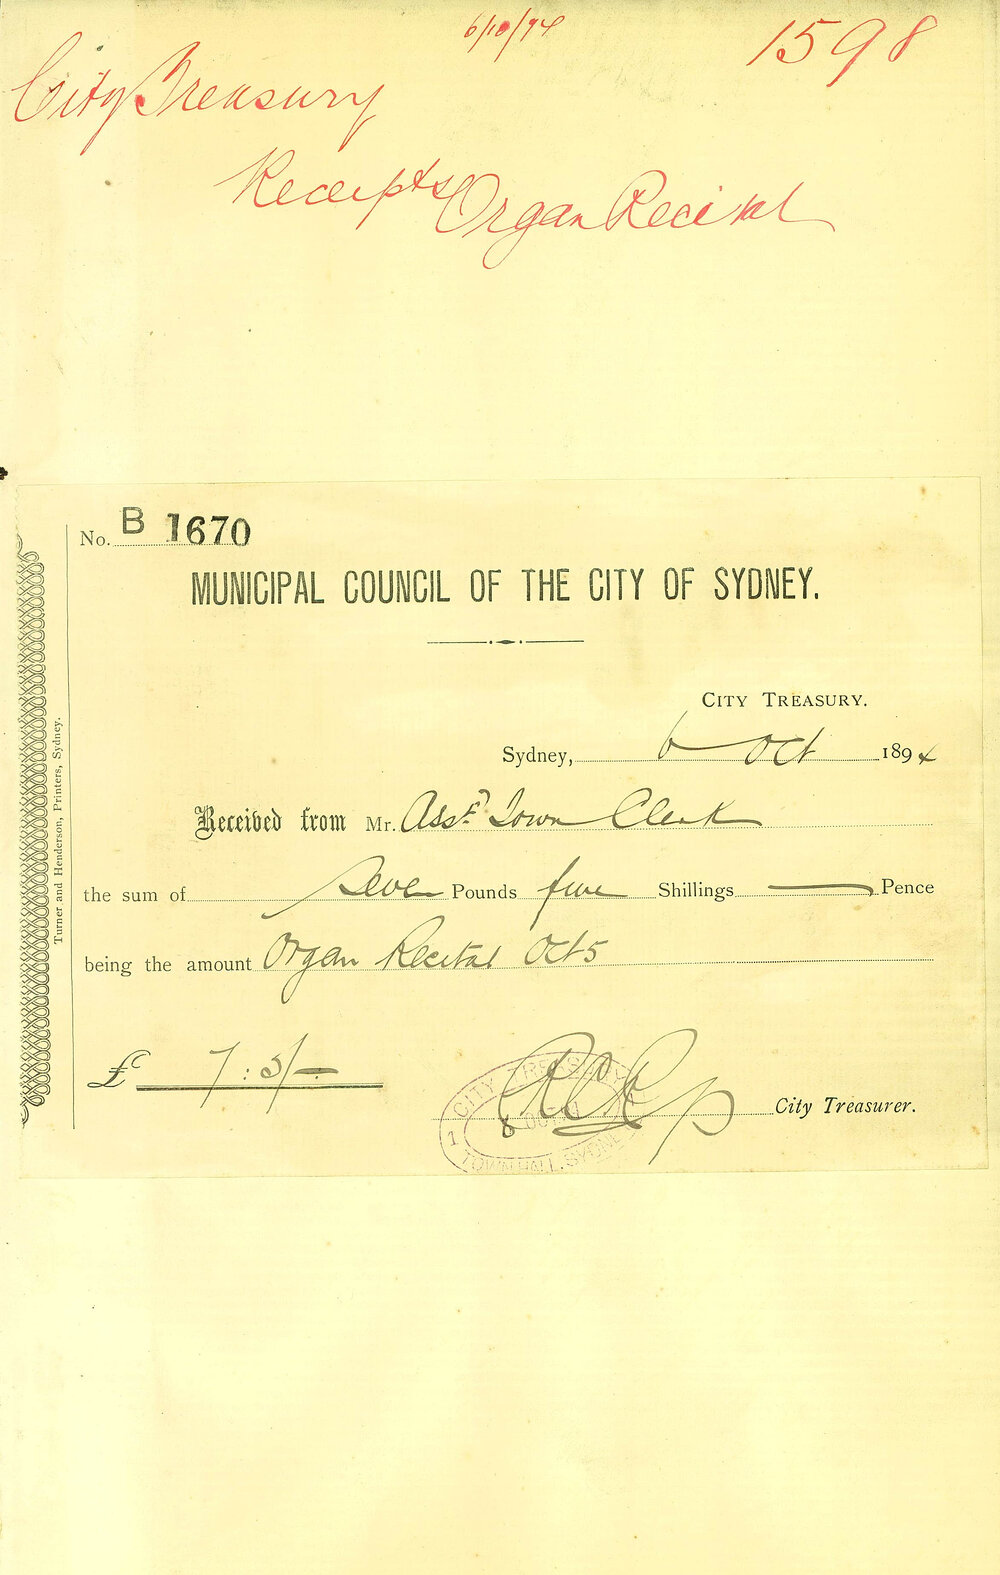 6/10/94
1598
City Treasury
Receipts Organ Recital
No. B 1670
MUNICIPAL COUNCIL OF THE CITY OF SYDNEY.
CITY TREASURY.
Sydney, 6 Oct 1894
Received from Mr. Asst Town Clerk
the sum of Seven Pounds five Shillings — Pence
being the amount Organ Recital Oct 5
£ 7:5/-
City Treasurer.
CITY TREASURY
8 OCT
1
TOWN HALL, SYDNEY
Turner and Henderson, Printers, Sydney.